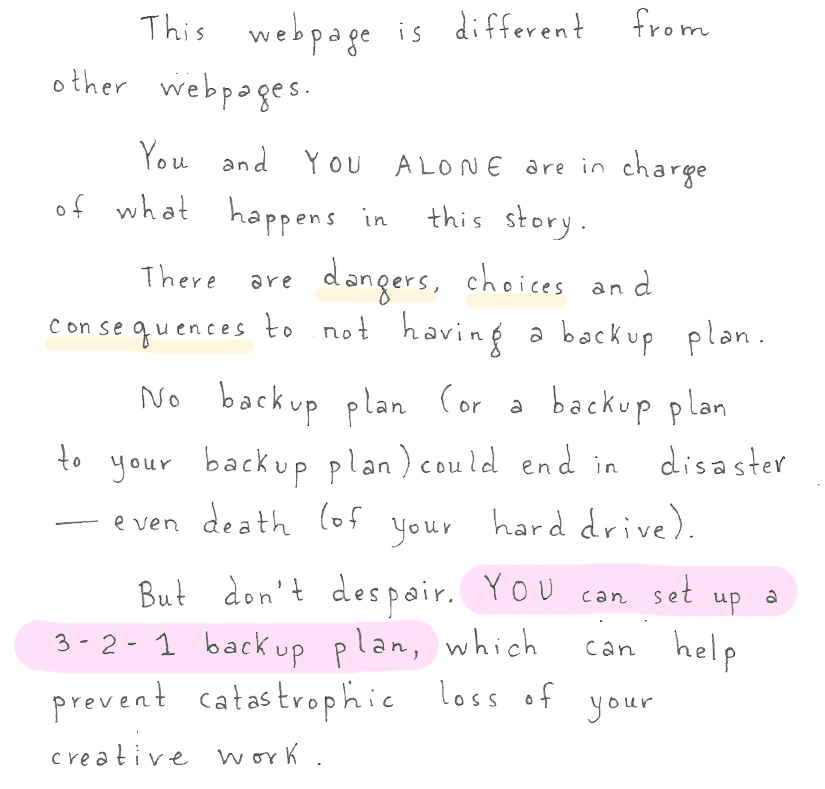 This webpage is different from
other webpages.
You and YOU ALONE are in charge
of what happens in this story.
There are dangers, choices and
consequences to not having a backup plan.
No backup plan (or a backup plan
to your backup plan) could end in disaster
— even death (of your hard drive).
But don't despair. YOU can set up a
3-2-1 backup plan, which can help
prevent catastrophic loss of your
creative work.